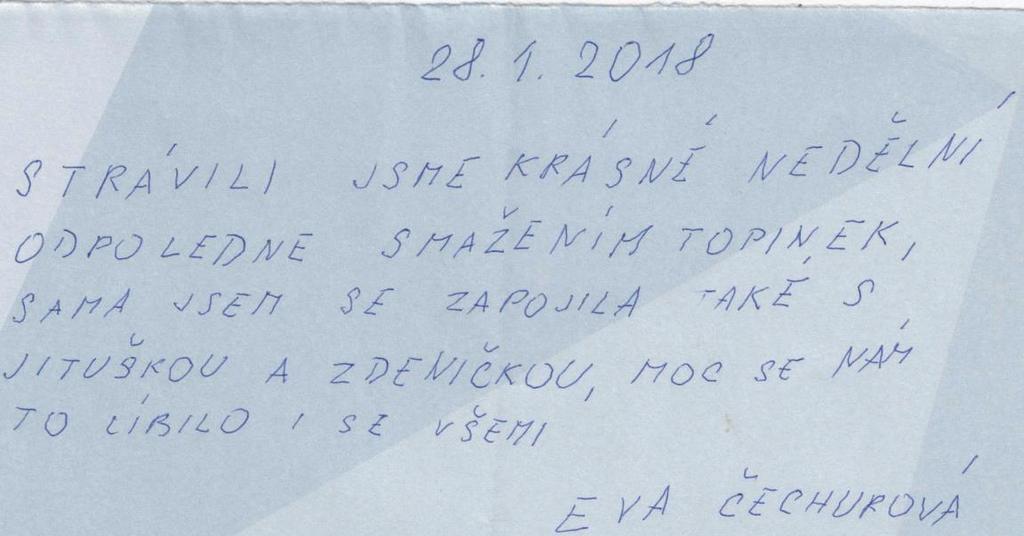 28. 1. 2018
STRÁVILI JSME KRÁSNÉ NEDĚLNÍ
ODPOLEDNE SMAŽENÍM TOPINEK,
SAMA JSEM SE ZAPOJILA TAKÉ S
JITUŠKOU A ZDENIČKOU, MOC SE NÁM
TO LÍBILO I SE VŠEMI
EVA ČECHUROVÁ